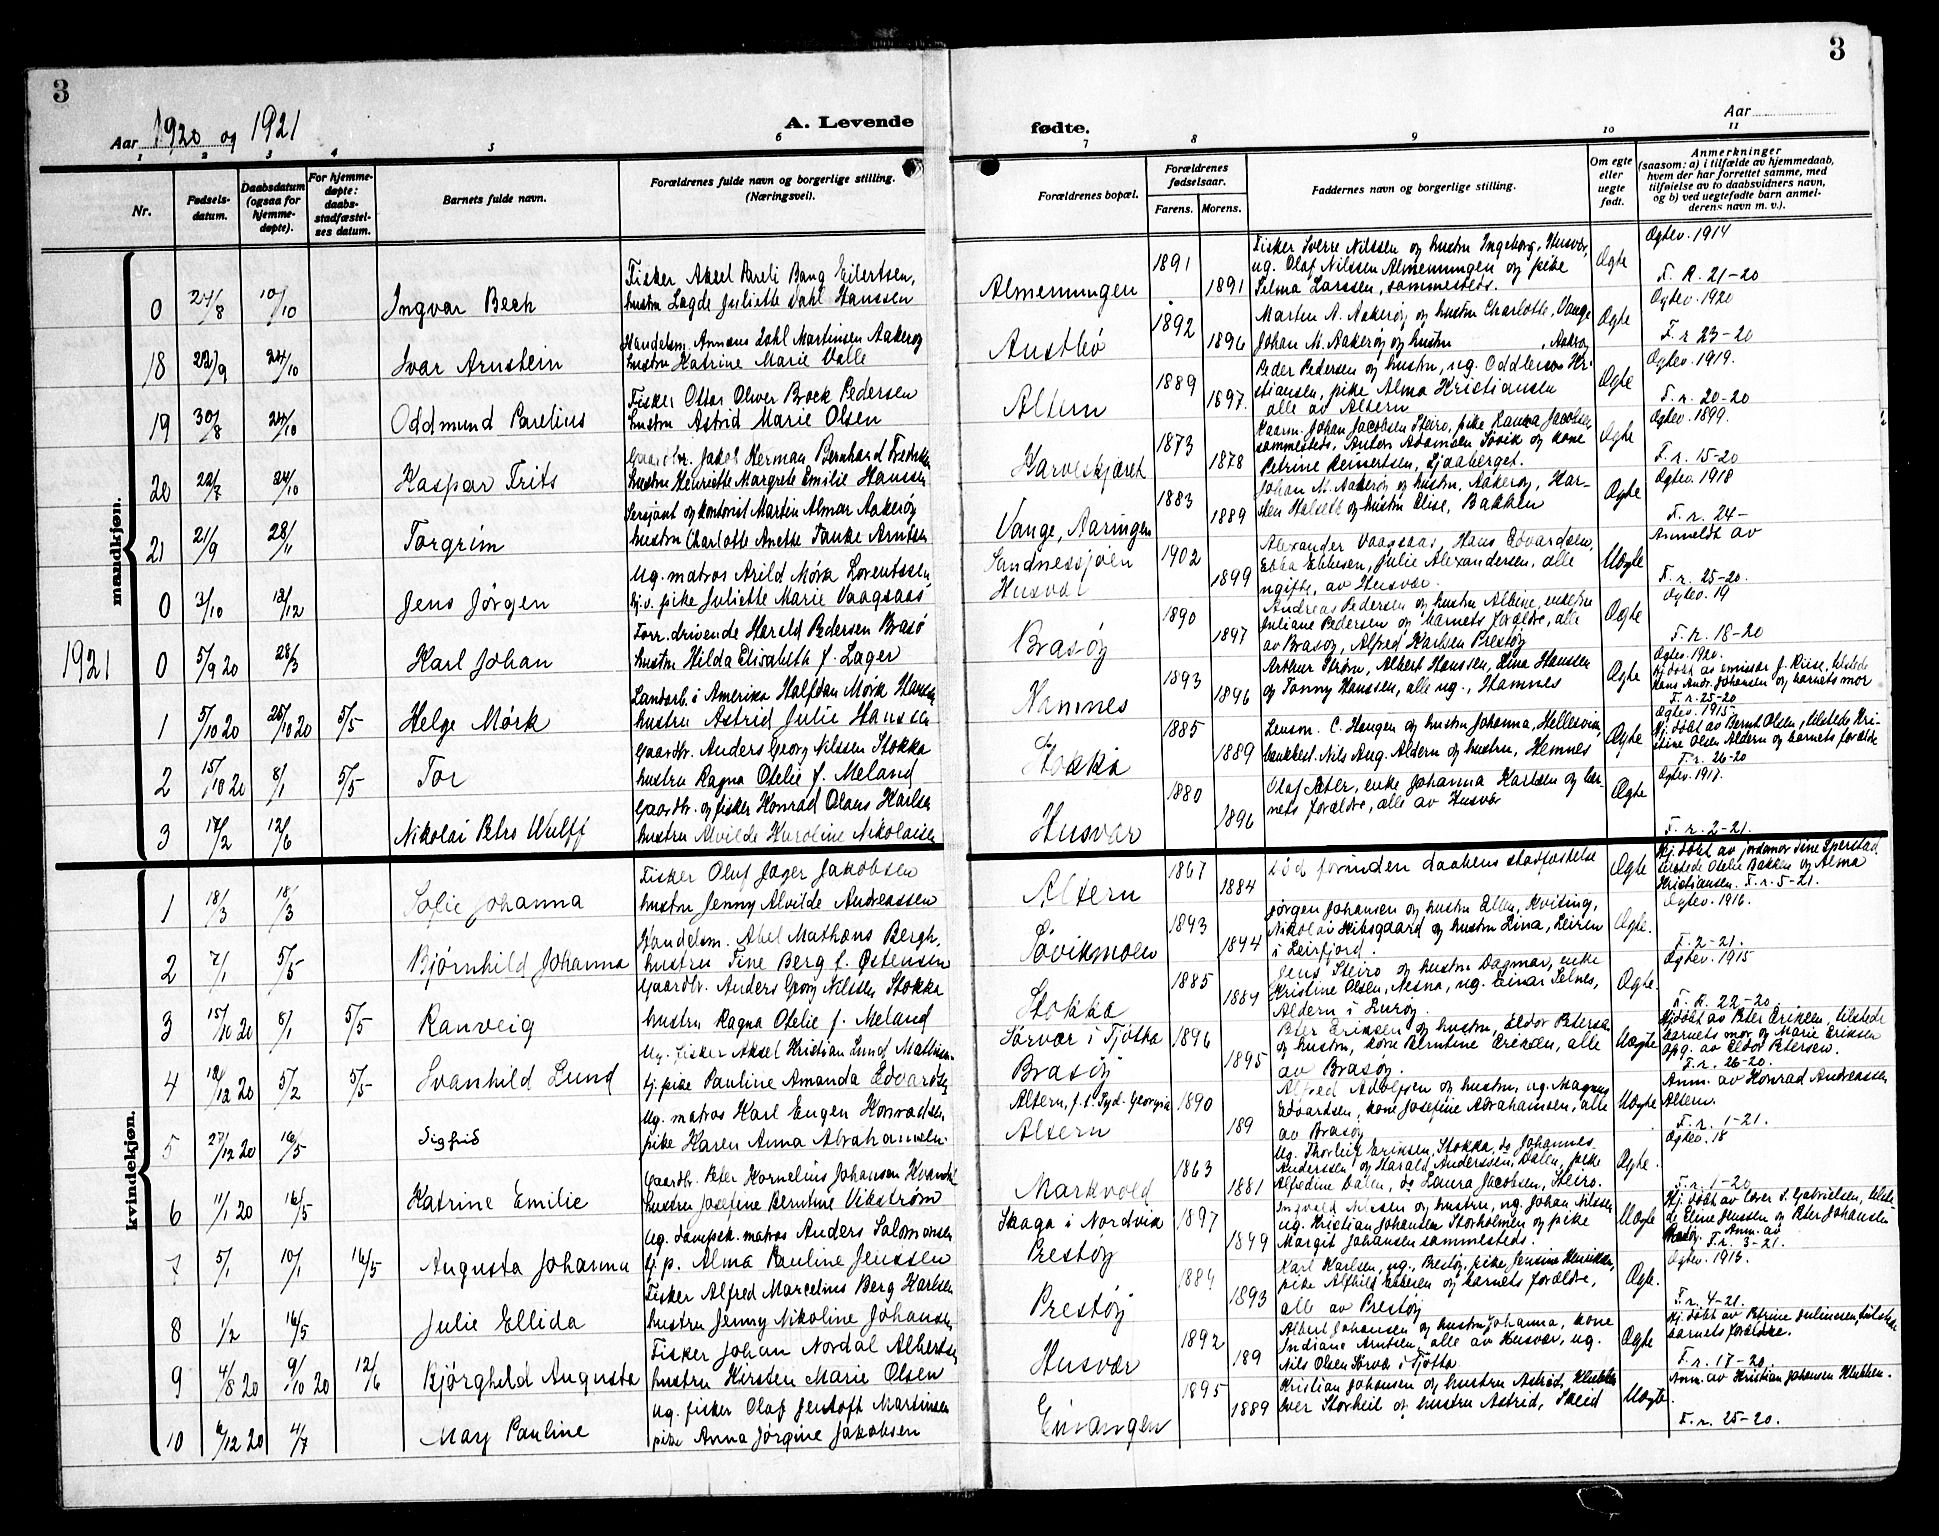 3
3
Aar 1920 og 1921
A. Levende
fødte.
Aar
1
2
3
4
5
6
7
8
9
10
11
Nr.
Fødsels-
datum.
Daabsdatum
(ogsaa for
hjemme-
døpte).
For hjemme-
døpte:
daabs-
stadfæstel-
ses datum.
Barnets fulde navn.
Forældrenes fulde navn og borgerlige stilling.
(Næringsvei).
Forældrenes bopæl.
Forældrenes
fødselsaar.
Farens.
Morens.
Faddernes navn og borgerlige stilling.
Om egte
eller
uegte
født.
Anmerkninger
(saasom: a) i tilfælde av hjemmedaab,
hvem der har forrettet samme, med
tilføielse av to daabsvidners navn,
og b) ved uegtefødte barn anmel-
derens navn m. v.).
mandkjøn.
0 24/8 10/10 Ingvar Bech
Fisker Aksel Pareli Bang Eilertsen,
hustru Lagde Juliette Dahl Hanssen
Almenningen 1891 1891
Fisker Sverre Nilssen og hustru Ingeborg, Husvær,
ug. Olaf Nilssen Almenningen og pike
Selma Larssen, sammesteds.
Ægte
Ægtev. 1914
F. R. 21-20
18 22/9 24/10 Ivar Arnstein
Handelsm. Annæus Dahl Martinsen Aakerøy
hustru Katrine Marie Valle
Austbø 1892 1896
Marten A. Aakerøy og hustru Charlotte, Vange
Johan M. Aakerøy og hustru , Aakerøy
Ægte
Ægtev. 1920
F. r 23-20
19 30/8 24/10 Oddmund Parelius
Fisker Ottar Oliver Brock Pedersen
hustru Astrid Marie Olsen
Altern 1889 1897.
Peder Pedersen og hustru, ug. Oddleiv Kri-
stiansen, pike Alma Kristiansen
alle av Altern
Ægte
Ægtev. 1919.
F. r. 20-20
20 22/7 24/10 Kaspar Frits
Gaardbr. Jakob Herman Bernhard Fredriksen
hustru Henriette Margrete Emilie Hanssen
1873 1878
Kaarm. Johan Jacobsen Steiro, pike Laura Jacobsen,
sammesteds, Anton Adamsen Søvik og kone
Petrine Reinertsen, Sjaaberget.
Ægte
Ægtev. 1899.
F. r. 15-20
21 21/9 28/11 Torgrim
Sersjant og kontorist Martin Almar Aakerøy
hustru Charlotte Anette Tanke Arntsen
Vange, Aaringen 1883 1889
Johan M. Aakerøy og hustru, Aakerøy, Har-
sten Halseth og hustru Elise, Bakken
Ægte
Ægtev. 1918
F. r. 24-
0 3/10 12/12 Jens Jørgen
Ug. matros Arild Mørk Lorentssen
tj.v. pike Juliette Marie Vaagsaas
Sandnessjøen
Husvær 1902 1899
Alexander Vaagsaas, Hans Edvardsen,
Ebba Ebbesen, Julie Alexandersen, alle
ugifte, av Husvær.
Uægte
Anmeldt av
F. r. 25-20.
1921 0 5/9 20 28/3 Karl Johan
Forr.drivende Harald Pedersen Brasø
hustru Hilda Elisabeth f. Lager
Brasøy 1890 1897
Andreas Pedersen og hustru Albine, enkefru
Juliane Pedersen og barnets forældre, alle
av Brasøy, Alfred Karlsen Prestøy
Ægte
Ægtev. 19
F. r. 18-20
1 5/10 20 25/10 20 5/5 Helge Mørk
Landarb. i Amerika Halfdan Mørk Hansen
hustru Astrid Julie Hanssen
Hamnes 1893 1896
Arthur Strøm, Albert Hanssen, Lina Hanssen
og Fanny Hanssen, alle ug., Hamnes
Ægte
Ægtev. 1920.
Hj.døbt av emissær J. Riise, tilstede
Hans Andr. Johansen og barnets mor
F. r. 25-20
2 15/10 20 8/1 5/5 Tor
Gaardbr. Anders Georg Nilssen Stokka
hustru Ragna Otelie f. Meland
Stokka 1885 1889
Lensm. C. Haugen og hustru Johanna, Hellesvik,
bankbest. Nils Aug. Aldern og hustru, Hemnes
Ægte
Ægtev. 1915
Hj. døbt av Bernt Olsen, tilstede Kri-
stine Olsen Aldern og barnets forældre
F. r. 26-20
3 17/2 12/6 Nikolai Petrs Wulff
Gaardbr. og fisker Konrad Olaus Karlsen
hustru Alvilde Karoline Nikolaisen
Husvær 1880 1896
Olaf Sæter, enke Johanna Karlsen og bar-
nets forældre, alle av Husvær
Ægte
Ægtev. 1917.
F. r. 2-21.
kvindekjøn.
1 18/3 18/3 Sofie Johanna
Fisker Oluf Jæger Jakobsen
hustru Jenny Alvilde Andreassen
Altern 1867 1884
død forinden daabens stadfæstelse
Ægte
Hj. døbt av jordmor Tine Sperstad
tilstede Otelie Bakken og Alma
Kristiansen. F. r. 5-21.
2 7/1 5/5 Bjørnhild Johanna
Handelsm. Abel Mathæus Bergh,
hustru Tine Berg f. Østensen
Søvikmoen 1893 1894
Jørgen Johansen og hustru Ellen, Kviting,
Nikolai Hibsgaard og hustru Lina, Leiren
i Leirfjord.
Ægte.
Ægtev. 1916.
F. 2-21.
3 15/10 20 8/1 5/5 Ranveig
Gaardbr. Anders Georg Nilssen Stokka
hustru Ragna Otelie f. Meland
Stokka 1885 1889
Jens Steiro og hustru Dagmar, enke
Kristine Olsen, Nesna, ug. Einar Selnes,
Aldern i Lurøy.
Ægte.
Ægtev. 1915
F. R. 22-20.
4 12/12 20 5/2 5/5 Svanhild Lund
Ug. fisker Aksel Kristian Lund Mathisen
tj. pike Pauline Amanda Edvardsen
Sørvær i Tjøtta
Brasøy 1896 1895
Peter Eriksen og hustru, Eldor Petersen
og hustru, kone Berntine Eriksen, alle
av Brasøy.
Uægte
Hj.døbt av Peter Eriksen, tilstede
barnets mor og Marie Eriksen
Opg. av Eldor Petersen.
F. r. 26-20.
5 27/12 20 16/5 Sigfrid
Ug. matros Karl Eugen Konradsen
pike Karen Anna Abrahamsen
Altern, f. t. Syd. Georgia
Altern 1890 189
Alfred Adolfsen og hustru, ug. Magnus
Edvardsen, kone Josefine Abrahamsen, alle
av Brasøy
Uægte
Anm. av Konrad Andreassen
Altern.
F. r. 1-21.
6 11/1 20 16/5 Katrine Emilie
Gaardbr. Peter Kornelius Johansen Kvandal
hustru Josefine Berntine Vikstrøm
Markvold 1863 1881
Ug. Thorleif Eriksen, Stokka, do Johannes
Anderssen og Harald Anderssen, Dalen, pike
Alfedine Dalen, do Laura Jacobsen, Steiro.
Ægte.
Ægtev. 18
F. r. 1-20
7 5/1 10/1 16/5 Augusta Johanna
Ug. dampsk. matros Anders Salomonsen
tj. p. Alma Pauline Jenssen
Skaga i Nordvik
Prestøy 1897 1899
Ingvald Nilssen og hustru, ug. Johan Nilssen
ug. Kristian Johansen Storholmen og pike
Margit Johansen sammesteds.
Uægte
Hj. døbt av lærer S. Gabrielsen, tilste-
de Eline Jenssen og Peter Johansen
Prestøy. Anm. av
F. r. 3-21.
8 1/2 16/5 Julie Ellida
Fisker Alfred Marcelius Berg Karlsen
hustru Jenny Nikoline Johansen
Prestøy 1884 1893
Karl Karlsen, ug., Prestøy, pike Jensine Henriksen,
pike Alfhild Ebbesen og barnets forældre,
alle av Prestøy
Ægte.
Ægtev. 1915.
F. r. 4-21.
9 4/8 20 9/10 20 12/6 Bjørghild Augusta
Fisker Johan Nordal Albertsen
hustru Kirsten Marie Olsen
Husvær 1892 189
Albert Johansen og hustru Johanna, kone
Indiane Arntsen, alle av Husvær, ug.
Nils Olsen Sørvær i Tjøtta
Ægte
Hj. døbt av Petrine Juliussen, tilstede
barnets forældre.
F. r. 17-20.
10 6/12 20 4/7 Mary Pauline
Ug. fisker Olaf Jentoft Martinsen
pike Anna Jørgine Jakobsen
Einvangen 1895 1889
Kristian Johansen og hustru Astrid, Klubben
Iver Storheil og hustru Astrid, Skeid
Uægte.
Anm. av Kristian Johansen Klubben.
F. r. 25-20.